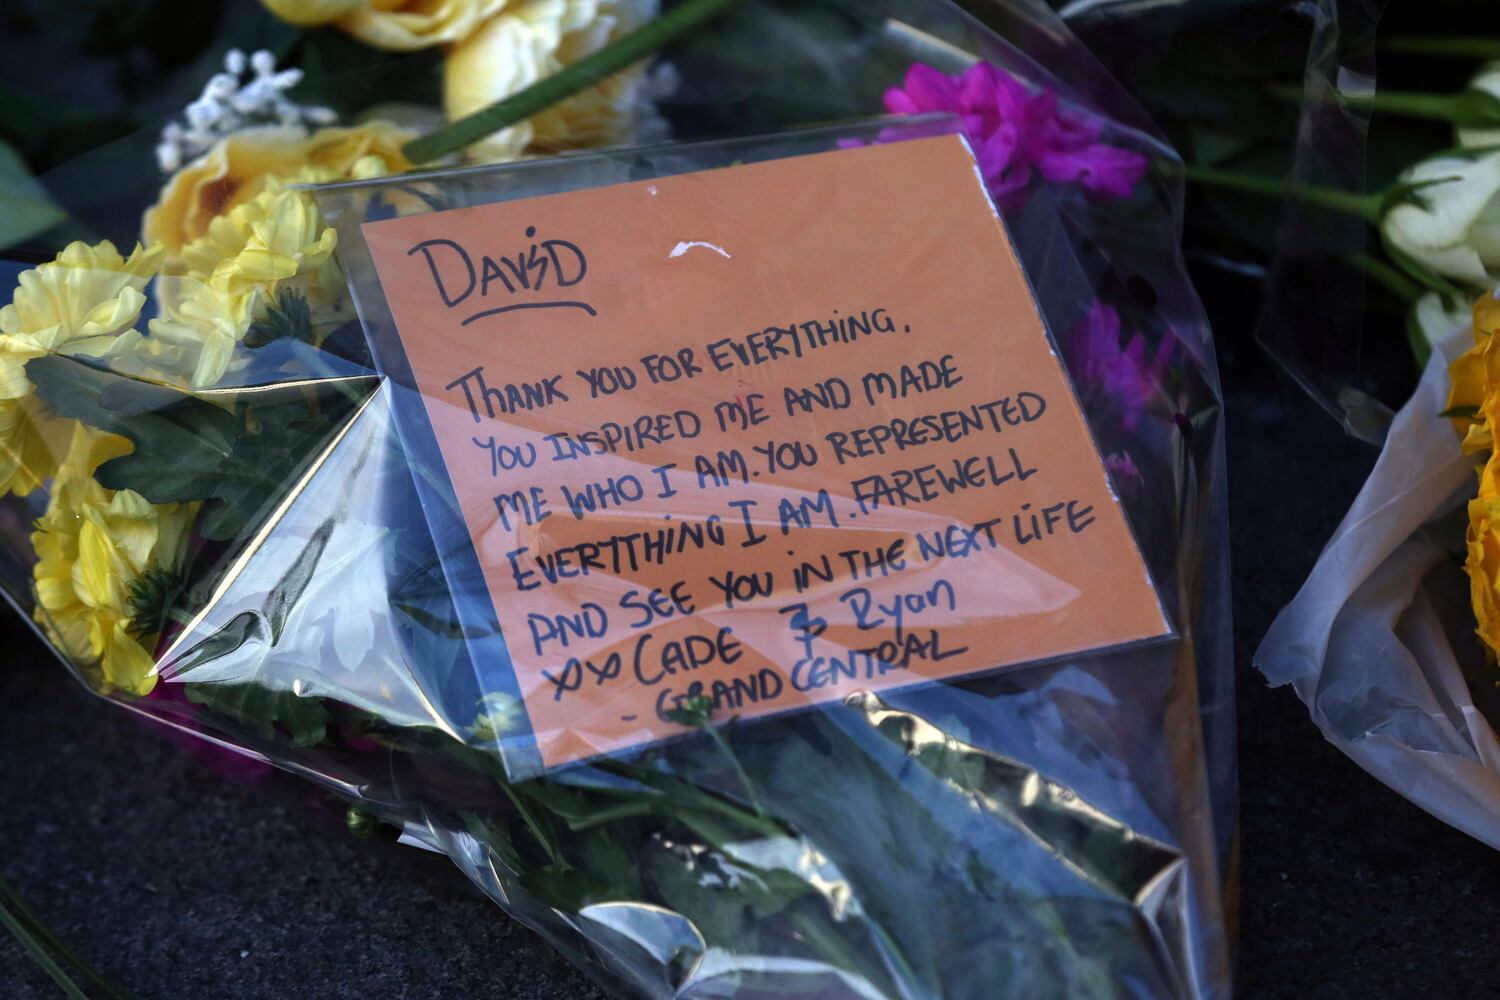 DAViD
THANK YOU FOR EVERYTHiNG.
YOU INSPIRED ME AND MADE
ME WHO I AM. YOU REPRESENTED
EVERYTHiNG I AM. FAREWELL
AND SEE YOU iN THE NEXT LiFE
xx CADE & Ryan
- GRAND CENTRAL